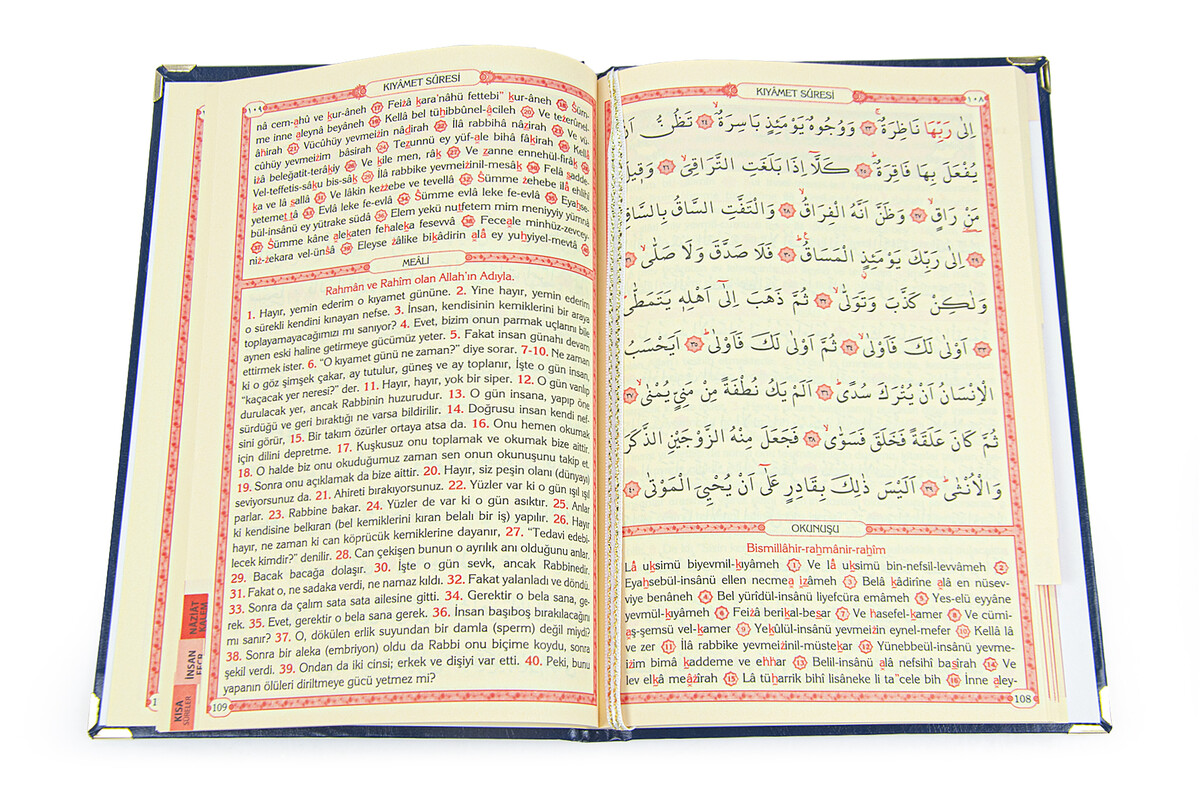 KIYÂMET SÛRESİ
١٠٨
اِلٰى رَبِّهَا نَاظِرَةٌۚ ﴿٢٣﴾ وَوُجُوهٌ يَوْمَئِذٍ بَاسِرَةٌۙ ﴿٢٤﴾ تَظُنُّ اَنْ
يُفْعَلَ بِهَا فَاقِرَةٌۜ ﴿٢٥﴾ كَلَّٓا اِذَا بَلَغَتِ التَّرَاقِيَۙ ﴿٢٦﴾ وَق۪يلَ
مَنْ رَاقٍۙ ﴿٢٧﴾ وَظَنَّ اَنَّهُ الْفِرَاقُۙ ﴿٢٨﴾ وَالْتَفَّتِ السَّاقُ بِالسَّاقِۙ
﴿٢٩﴾ اِلٰى رَبِّكَ يَوْمَئِذٍۨ الْمَسَاقُۜ ﴿٣٠﴾ فَلَا صَدَّقَ وَلَا صَلّٰىۙ ﴿٣١﴾
وَلٰكِنْ كَذَّبَ وَتَوَلّٰىۙ ﴿٣٢﴾ ثُمَّ ذَهَبَ اِلٰٓى اَهْلِه۪ يَتَمَطّٰىۜ
﴿٣٣﴾ اَوْلٰى لَكَ فَاَوْلٰىۙ ﴿٣٤﴾ ثُمَّ اَوْلٰى لَكَ فَاَوْلٰىۜ ﴿٣٥﴾ اَيَحْسَبُ
الْاِنْسَانُ اَنْ يُتْرَكَ سُدًىۜ ﴿٣٦﴾ اَلَمْ يَكُ نُطْفَةً مِنْ مَنِيٍّ يُمْنٰىۙ ﴿٣٧﴾
ثُمَّ كَانَ عَلَقَةً فَخَلَقَ فَسَوّٰىۙ ﴿٣٨﴾ فَجَعَلَ مِنْهُ الزَّوْجَيْنِ الذَّكَرَ
وَالْاُنْثٰىۜ ﴿٣٩﴾ اَلَيْسَ ذٰلِكَ بِقَادِرٍ عَلٰٓى اَنْ يُحْيِيَ الْمَوْتٰى ﴿٤٠﴾
OKUNUŞU
Bismillâhir-rahmânir-rahîm
Lâ uksimü biyevmil-kıyâmeh 1 Ve lâ uksimü bin-nefsil-levvâmeh 2
Eyahsebül-insânü ellen necmea izâmeh 3 Belâ kâdirîne alâ en nüsev-
viye benâneh 4 Bel yürîdül-insânü liyefcüra emâmeh 5 Yes-elü eyyâne
yevmül-kıyâmeh 6 Feizâ berikal-besar 7 Ve hasefel-kamer 8 Ve cümi-
aş-şemsü vel-kamer 9 Yekûlül-insânü yevmeizin eynel-mefer 10 Kellâ lâ
ve zer 11 İlâ rabbike yevmeizinil-müstekar 12 Yünebbeül-insânü yevme-
izim bimâ kaddeme ve ehhar 13 Belil-insânü alâ nefsihî basîrah 14 Ve
lev elkâ meâzîrah 15 Lâ tüharrik bihî lisâneke li ta"cele bih 16 İnne aley-
108
KIYÂMET SÛRESİ
١٠٩
nâ cem-ahû ve kur-âneh 17 Feizâ kara'nâhü fettebi" kur-âneh 18 Süm-
me inne aleynâ beyâneh 19 Kellâ bel tühibbûnel-âcileh 20 Ve tezerûnel-
âhirah 21 Vücûhüy yevmeizin nâdirah 22 İlâ rabbihâ nâzirah 23 Ve vü-
cûhüy yevmeizim bâsirah 24 Tezunnü ey yüf-ale bihâ fâkirah 25 Kellâ
izâ beleğatit-terâkıy 26 Ve kîle men, râk 27 Ve zanne ennehül-firâk 28
Vel-teffetis-sâku bis-sâk 29 İlâ rabbike yevmeizinil-mesâk 30 Felâ sadde-
ka ve lâ sallâ 31 Ve lâkin kezzebe ve tevellâ 32 Sümme zehebe ilâ ehlihî
yetemettâ 33 Evlâ leke fe-evlâ 34 Sümme evlâ leke fe-evlâ 35 Eyahse-
bül-insânü ey yütrake südâ 36 Elem yekü nutfetem mim meniyyiy yümnâ
37 Sümme kâne alekaten fehaleka fesevvâ 38 Feceale minhüz-zevcey-
niz-zekara vel-ünsâ 39 Eleyse zâlike bikâdirin alâ ey yuhyiyel-mevtâ 40
MEÂLİ
Rahmân ve Rahîm olan Allah'ın Adıyla.
1. Hayır, yemin ederim o kıyamet gününe. 2. Yine hayır, yemin ederim
o sürekli kendini kınayan nefse. 3. İnsan, kendisinin kemiklerini bir araya
toplayamayacağımızı mı sanıyor? 4. Evet, bizim onun parmak uçlarını bile
aynen eski haline getirmeye gücümüz yeter. 5. Fakat insan günahı devam
ettirmek ister. 6. "O kıyamet günü ne zaman?" diye sorar. 7-10. Ne zaman
ki o göz şimşek çakar, ay tutulur, güneş ve ay toplanır, İşte o gün insan,
"kaçacak yer neresi?" der. 11. Hayır, hayır, yok bir siper. 12. O gün varılıp
durulacak yer, ancak Rabbinin huzurudur. 13. O gün insana, yapıp öne
sürdüğü ve geri bıraktığı ne varsa bildirilir. 14. Doğrusu insan kendi nef-
sini görür, 15. Bir takım özürler ortaya atsa da. 16. Onu hemen okumak
için dilini depretme. 17. Kuşkusuz onu toplamak ve okumak bize aittir.
18. O halde biz onu okuduğumuz zaman sen onun okunuşunu takip et.
19. Sonra onu açıklamak da bize aittir. 20. Hayır, siz peşin olanı (dünyayı)
seviyorsunuz da. 21. Ahireti bırakıyorsunuz. 22. Yüzler var ki o gün ışıl ışıl
parlar. 23. Rabbine bakar. 24. Yüzler de var ki o gün asıktır. 25. Anlar
ki kendisine belkıran (bel kemiklerini kıran belalı bir iş) yapılır. 26. Hayır
hayır, ne zaman ki can köprücük kemiklerine dayanır, 27. "Tedavi edebi-
lecek kimdir?" denilir. 28. Can çekişen bunun o ayrılık anı olduğunu anlar.
29. Bacak bacağa dolaşır. 30. İşte o gün sevk, ancak Rabbinedir.
31. Fakat o, ne sadaka verdi, ne namaz kıldı. 32. Fakat yalanladı ve döndü.
33. Sonra da çalım sata sata ailesine gitti. 34. Gerektir o bela sana, ge-
rek. 35. Evet, gerektir o bela sana gerek. 36. İnsan başıboş bırakılacağını
mı sanır? 37. O, dökülen erlik suyundan bir damla (sperm) değil miydi?
38. Sonra bir aleka (embriyo) oldu da Rabbi onu biçime koydu, sonra
şekil verdi. 39. Ondan da iki cinsi; erkek ve dişiyi var etti. 40. Peki, bunu
yapanın ölüleri diriltmeye gücü yetmez mi?
109
NÂZİÂT
KALEM
İNSAN
FECR
KISA
SÛRELER